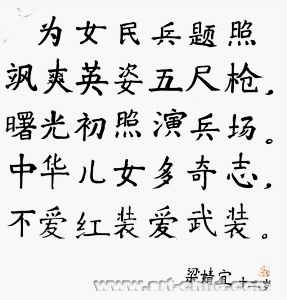 为女民兵题照
飒爽英姿五尺枪，
曙光初照演兵场。
中华儿女多奇志，
不爱红装爱武装。